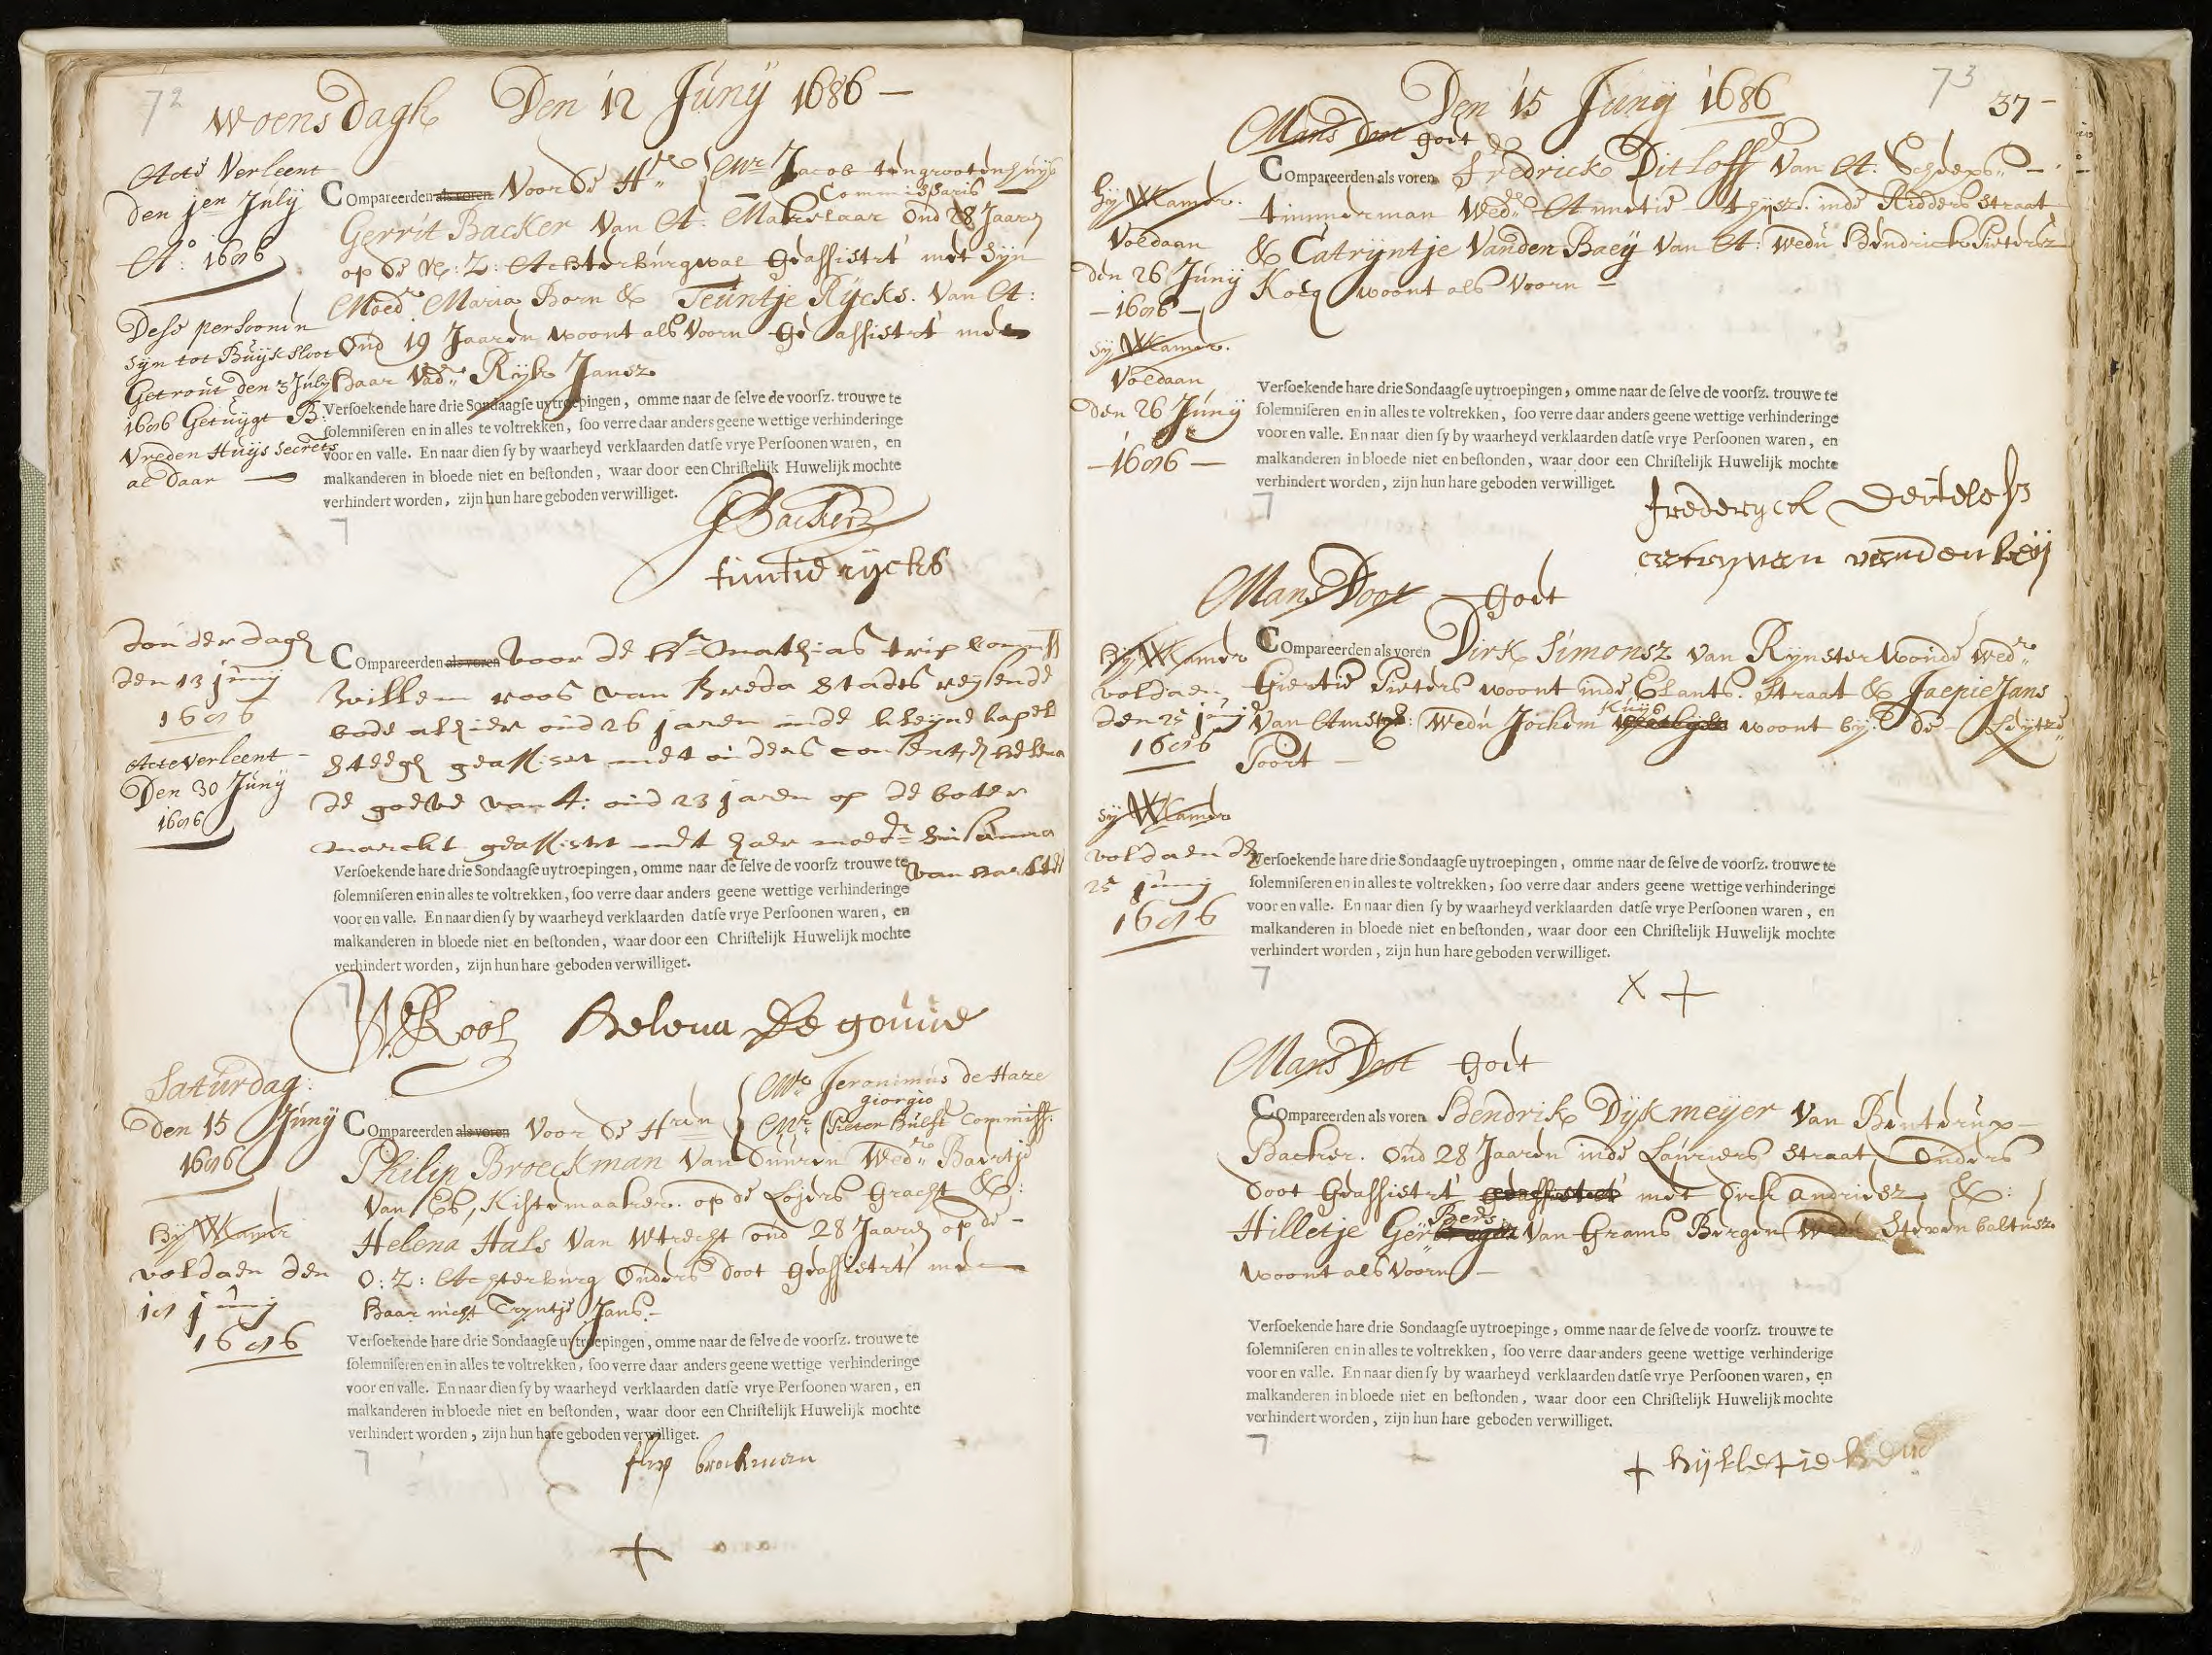 72
Woensdagh Den 12 Junij 1686 —
Acte Verleent
den jen July
A: 1686
Dese persoonen
syn tot Buijksloot
Getrout den 3 July
1686 Getuygt B:
Vredenhuijs Secrets
aldaar —
Compareerden als voren Voor de Hr. Mr Jacob ten grootenhuijs
Commissaris —
Gerrit Backer Van A: Makelaar Oud 28 Jaaren
op de N: Z: Achterburgwal Geassistrt met Syn
Moedr Maria Born & Teuntje Rijcks. Van A:
Oud 19 Jaaren woont als Voorn Geassistrt met
haar Vadr Rijk Jansz
Versoekende hare drie Sondaagse uytroepingen, omme naar de selve de voorsz. trouwe te
solemniseren en in alles te voltrekken, soo verre daar anders geene wettige verhinderinge
voor en valle. En naar dien sy by waarheyd verklaarden datse vrye Persoonen waren, en
malkanderen in bloede niet en bestonden, waar door een Christelijk Huwelijk mochte
verhindert worden, zijn hun hare geboden verwilliget.
GBacker
tuntie rijcks
donderdagh
den 13 junij
1686
Acte verleent
Den 30 Junij
1686
Compareerden als voren voor de Hr Mathias trip Commss
Willem roos van Breda Stadts reysende
bode alhier oud 26 jaren inde kleyne kapel
steegh geassistr met ouders consent, & helena
de goude van A: oud 23 jaren op de boter
marckt geassistr met haer moedr Susanna
van
Versoekende hare drie Sondaagse uytroepingen, omme naar de selve de voorsz trouwe te
solemniseren en in alles te voltrekken, soo verre daar anders geene wettige verhinderinge
voor en valle. En naar dien sy by waarheyd verklaarden datse vrye Persoonen waren, en
malkanderen in bloede niet en bestonden, waar door een Christelijk Huwelijk mochte
verhindert worden, zijn hun hare geboden verwilliget.
W Roos Helena De gouwe
Saturdag:
den 15 Junij
1686
hy WKamer
voldaen den
junij
1686
Compareerden als voren Voor de Hren Mr Jeronimus de Haze
giorgio
Mr Pieter Hulst Commiss:
Philip Broeckman Van Duuren Wedr Baertje
Van Es, Kistemaaker. op de Loijers Gracht &:
Helena Hals Van Wtrecht oud 28 Jaaren op de —
O: Z: Achterburg Ouders doot Geassistrt met
haar nicht Tryntje Jans —
Versoekende hare drie Sondaagse uytroepingen, omme naar de selve de voorsz. trouwe te
solemniseren en in alles te voltrekken, soo verre daar anders geene wettige verhinderinge
voor en valle. En naar dien sy by waarheyd verklaarden datse vrye Persoonen waren, en
malkanderen in bloede niet en bestonden, waar door een Christelijk Huwelijk mochte
verhindert worden, zijn hun hare geboden verwilliget.
flip brockman
+
73
37 —
Den 15 Junij 1686
Mans Doot Goet
hy WKamer.
Voldaan
den 26 Junij
— 1686 —
sy WKamer.
Voldaan
den 26 Junij
— 1686 —
Compareerden als voren Fredrick Ditloff Van A: Scheeps —
timmerman Wedr Annetie Thysz. inde Ridder straat
& Catrijntje Vanden Baeij Van A: wedu Hendrick Pietersz
Kocq woont als Voorn —
Versoekende hare drie Sondaagse uytroepingen, omme naar de selve de voorsz. trouwe te
solemniseren en in alles te voltrekken, soo verre daar anders geene wettige verhinderinge
voor en valle. En naar dien sy by waarheyd verklaarden datse vrye Persoonen waren, en
malkanderen in bloede niet en bestonden, waar door een Christelijk Huwelijk mochte
verhindert worden, zijn hun hare geboden verwilliget.
frederyck
vanden beij
Mans Doot — Goet
hy WKamer
voldaen
den 25 junij
1686
sy WKamer
voldaen den
25 junij
1686
Compareerden als voren Dirk Simonsz van Rijnsterwoude wedr
Giertie Pieters woont inde Elants. Straat & Jaepie Jans
Kuijs
Van Amstd: Wedu Jochem woont by de —
Poort —
Versoekende hare drie Sondaagse uytroepingen, omme naar de selve de voorsz. trouwe te
solemniseren en in alles te voltrekken, soo verre daar anders geene wettige verhinderinge
voor en valle. En naar dien sy by waarheyd verklaarden datse vrye Persoonen waren, en
malkanderen in bloede niet en bestonden, waar door een Christelijk Huwelijk mochte
verhindert worden, zijn hun hare geboden verwilliget.
X +
Mans Doot Goet
Compareerden als voren Hendrik Dijkmeijer Van Bentrup —
Backer. Oud 28 Jaaren inde Lauriers straat Ouders
doot Geassistrt geassistrt met Dirk andriesz &:
Hilletje Van Grams Bergen Wedu Steven baltusz
woont als Voorn —
Versoekende hare drie Sondaagse uytroepinge, omme naar de selve de voorsz. trouwe te
solemniseren en in alles te voltrekken, soo verre daar anders geene wettige verhinderige
voor en valle. En naar dien sy by waarheyd verklaarden datse vrye Persoonen waren, en
malkanderen in bloede niet en bestonden, waar door een Christelijk Huwelijk mochte
verhindert worden, zijn hun hare geboden verwilliget.
+ hijlletie